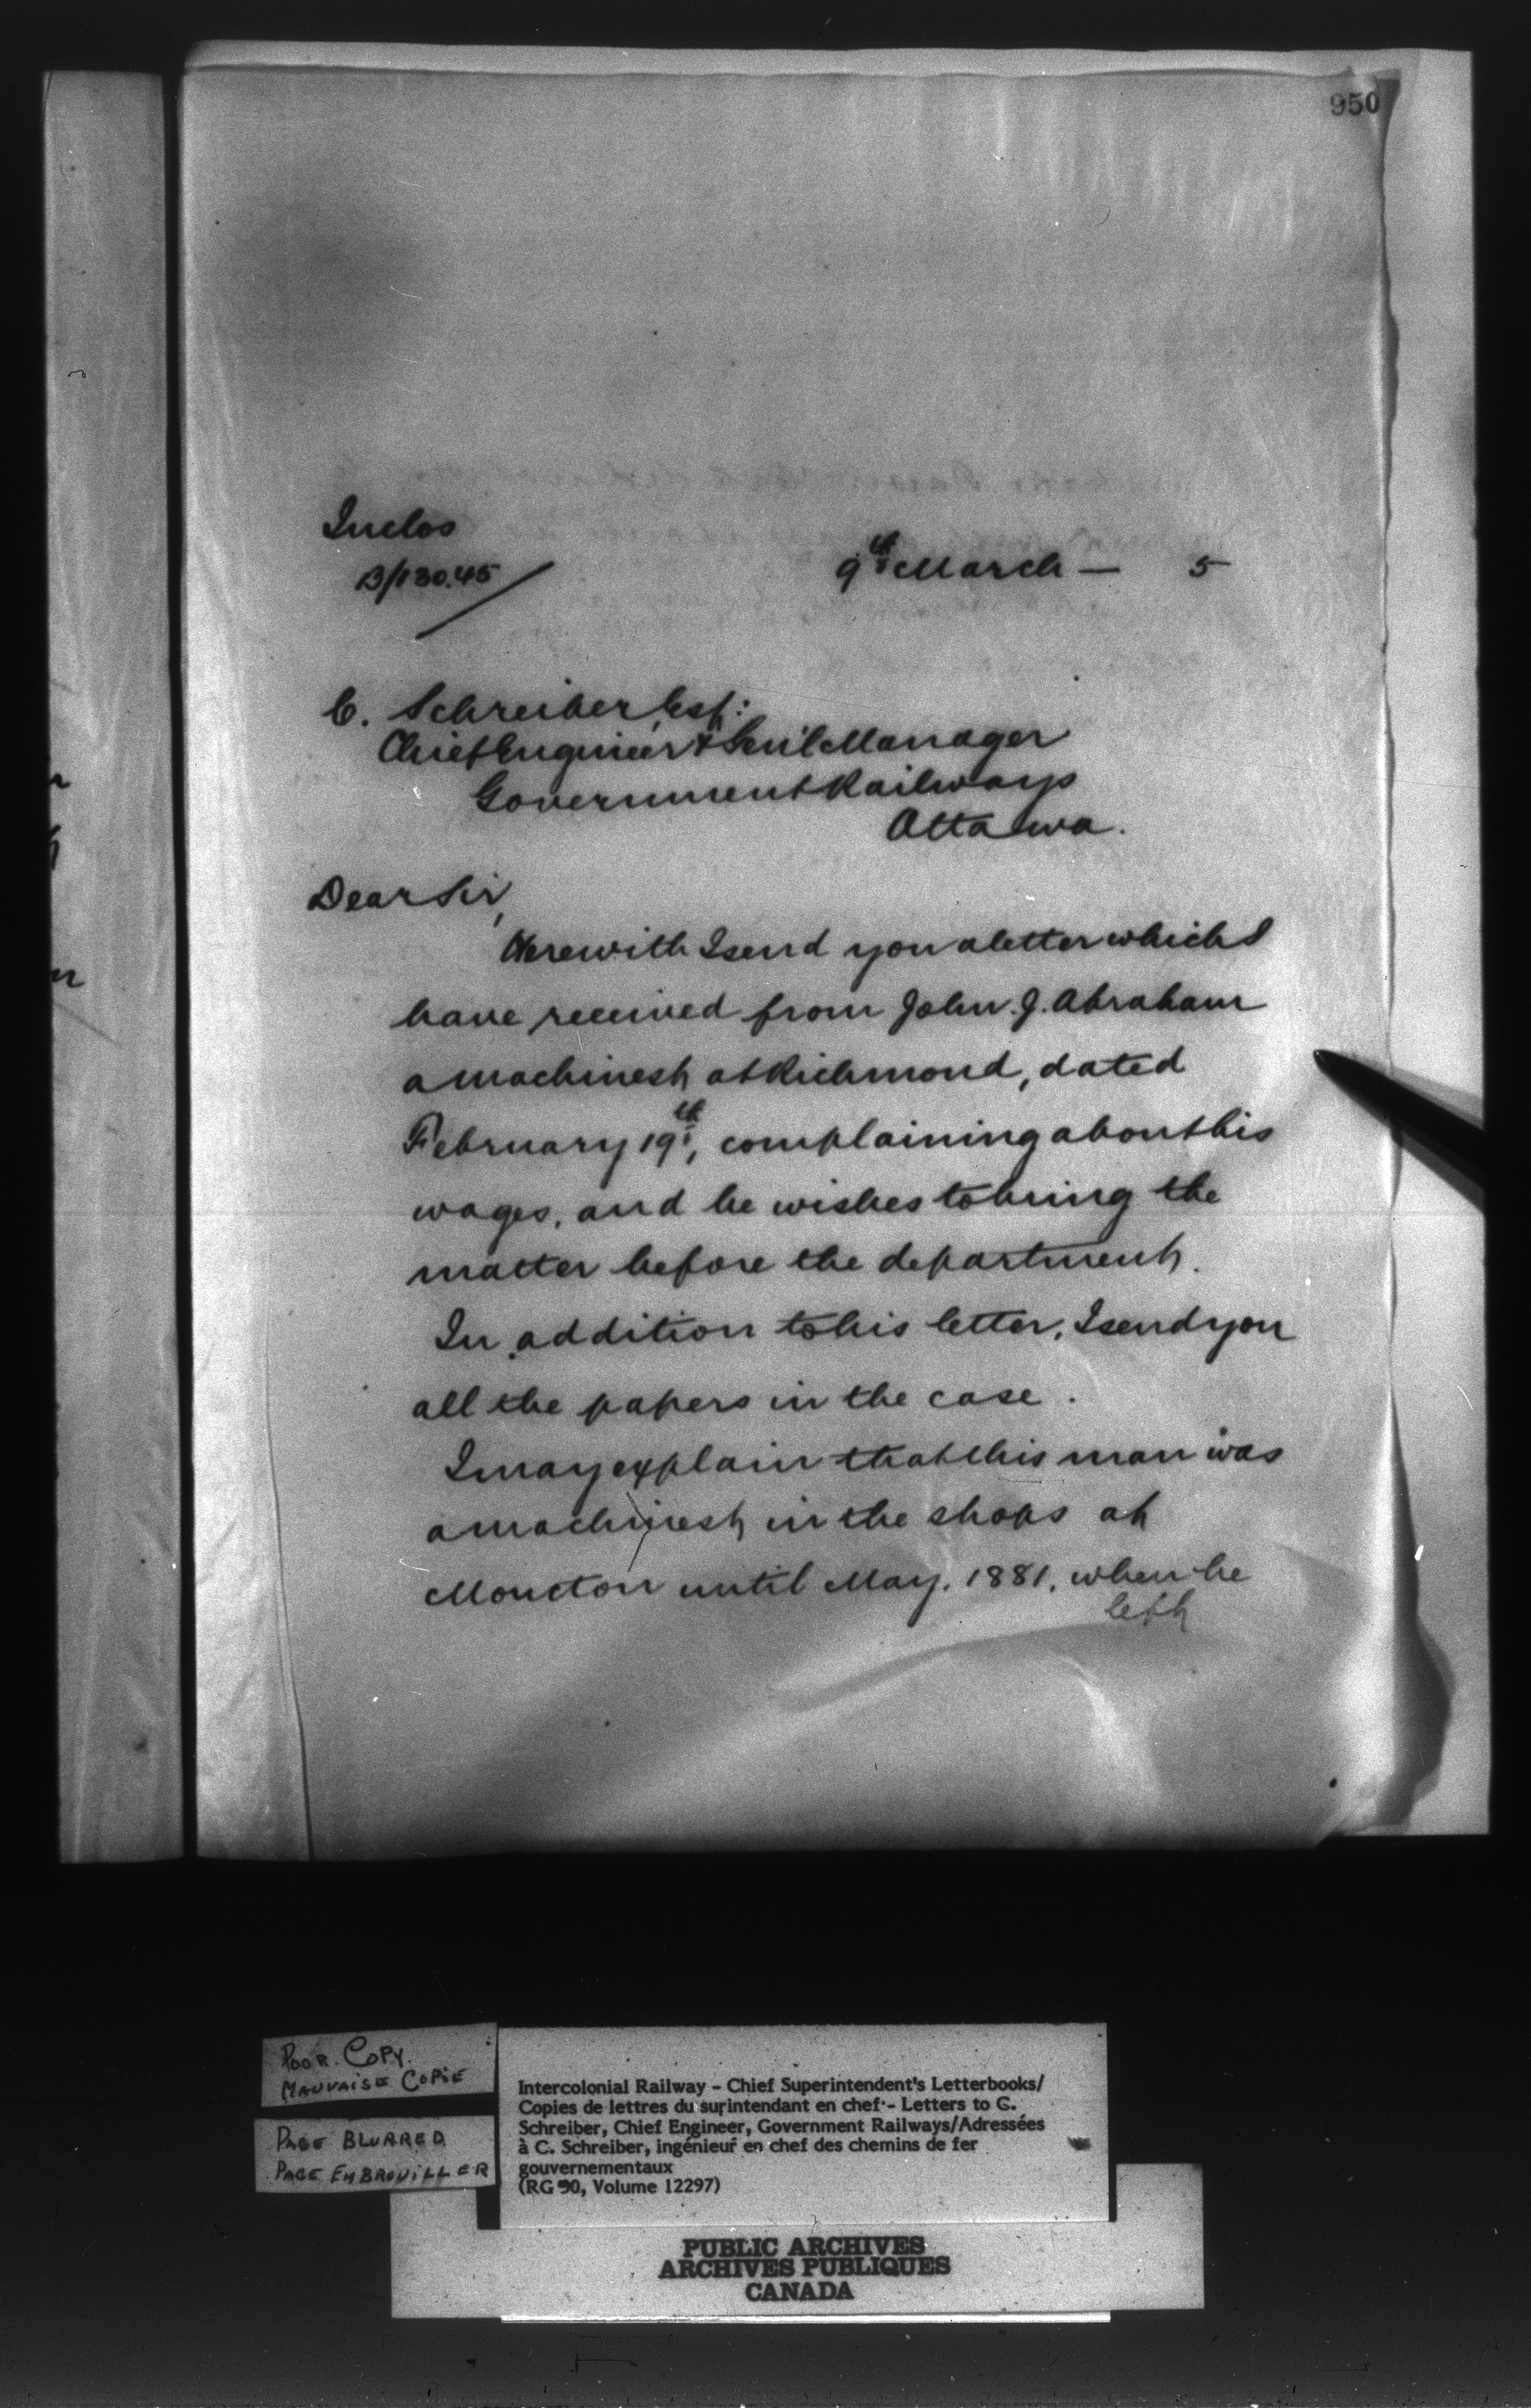 950
Inclos
B/130.45
9th March — 5
C. Schreiber Esq:
Chief Engineer & Gen'l Manager
Government Railways
Ottawa.
Dear Sir,
Herewith I send you a letter which I
have received from John. J. Abraham
a machinest at Richmond, dated
February 19th, complaining about his
wages, and he wishes to bring the
matter before the department.
In addition to his letter, I send you
all the papers in the case.
I may explain that this man was
a machinest in the shops at
Moncton until May, 1881, when he
left
POOR COPY.
MAUVAISE COPIE
PAGE BLURRED
PAGE EMBROUILLER
Intercolonial Railway - Chief Superintendent's Letterbooks/
Copies de lettres du surintendant en chef - Letters to C.
Schreiber, Chief Engineer, Government Railways/Adressées
à C. Schreiber, ingénieur en chef des chemins de fer
gouvernementaux
(RG 30, Volume 12297)
PUBLIC ARCHIVES
ARCHIVES PUBLIQUES
CANADA